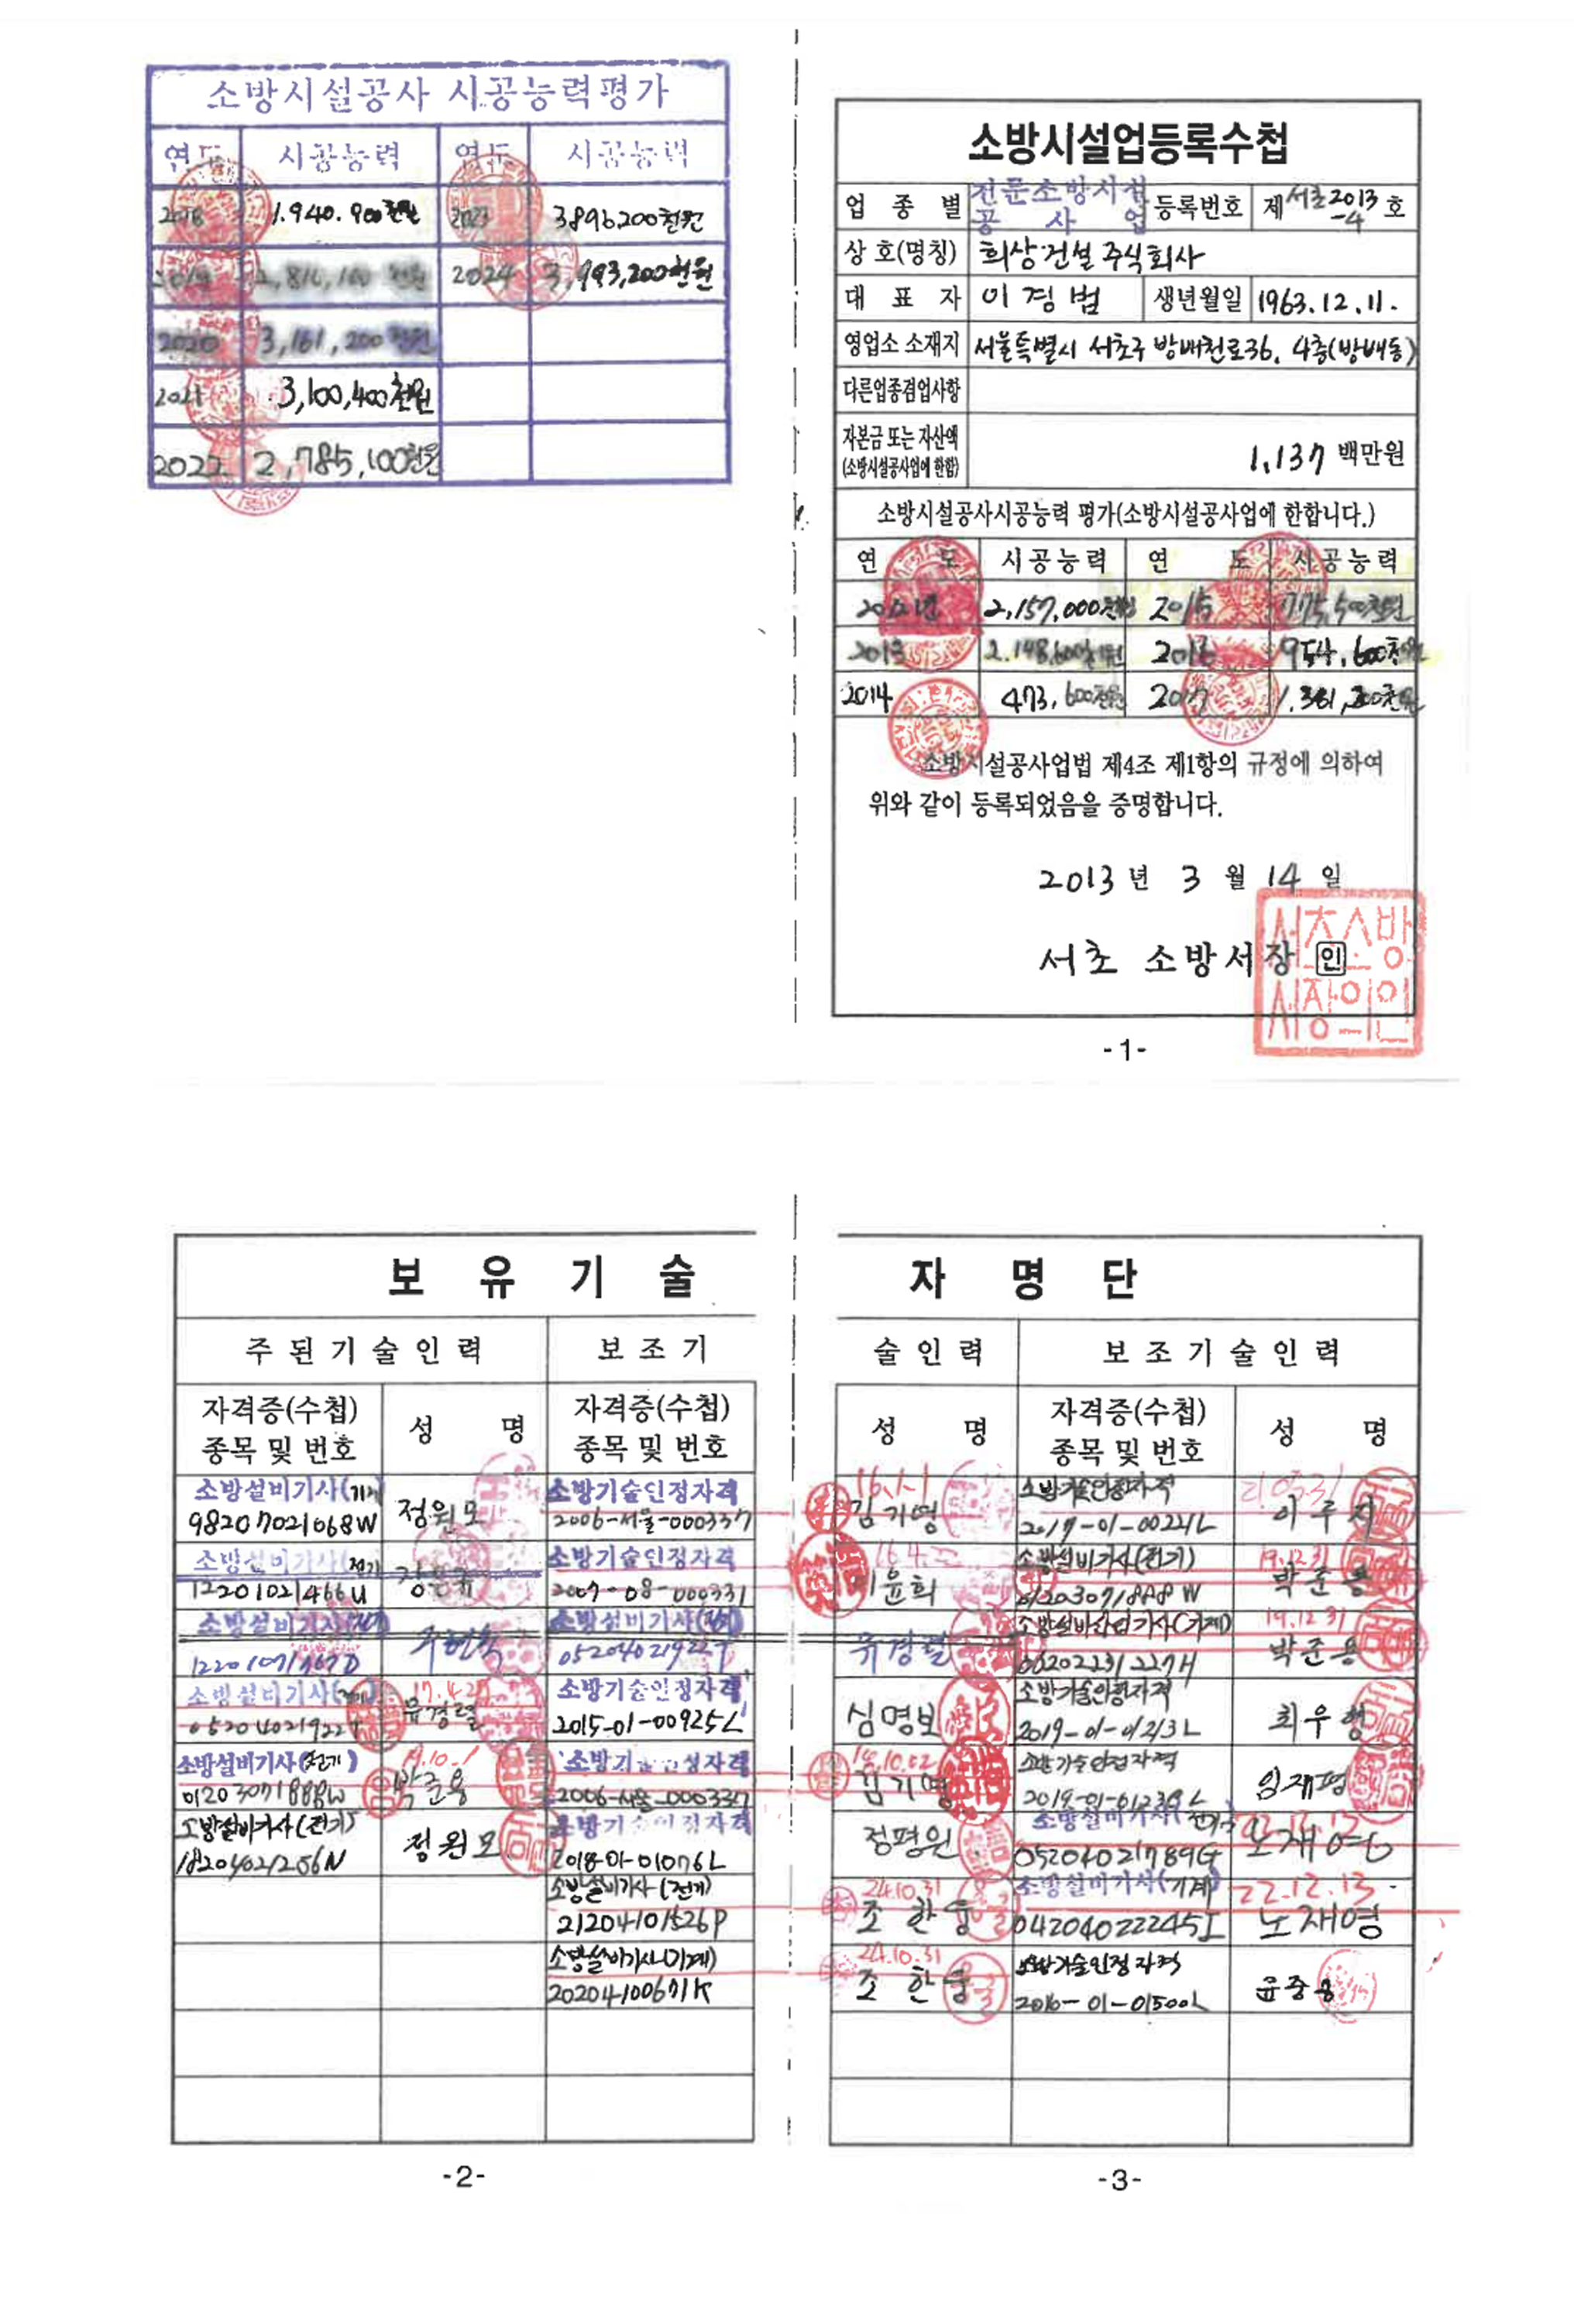 소방시설공사 시공능력평가
연도 시공능력 연도 시공능력
2018 1,940,900천원 2023 3,896,200천원
2019 2,816,100천원 2024 3,993,200천원
2020 3,161,200천원
2021 3,100,400천원
2022 2,785,100천원
소방시설업등록수첩
업종별 전문소방시설공사업 등록번호 제 서초2013-4 호
상호(명칭) 희상건설 주식회사
대표자 이경범 생년월일 1963.12.11.
영업소 소재지 서울특별시 서초구 방배천로36, 4층(방배동)
다른업종겸업사항
자본금 또는 자산액
(소방시설공사업에 한함) 1,137 백만원
소방시설공사시공능력 평가(소방시설공사업에 한합니다.)
연 도 시공능력 연 도 시공능력
2,157,000천원 2015 775,500천원
2013 2,148,600천원 2016 954,600천원
2014 473,600천원 2017 1,361,200천원
소방시설공사업법 제4조 제1항의 규정에 의하여
위와 같이 등록되었음을 증명합니다.
2013 년 3 월 14 일
서초 소방서장 인
서초소방
서장의인
-1-
보 유 기 술 자 명 단
주된기술인력 보조기술인력 보조기술인력
자격증(수첩) 성 명 자격증(수첩) 성 명 자격증(수첩) 성 명
종목 및 번호 종목 및 번호 종목 및 번호
소방설비기사(기계) 정원모 소방기술인정자격 16.1.1 김기영 소방기술인정자격 21.03.31
98207021068W 2006-서울-000337 2017-01-00221L 이루지
소방설비기사(전기) 소방기술인정자격 이윤희 소방설비기사(전기) 19.12.31 박준용
12201021466U 2007-08-000331
소방설비기사 소방설비기사 유경렬 소방설비산업기사(기계) 19.12.31 박준용
05204021922T
소방설비기사 유경렬 소방기술인정자격 심명보 소방기술인정자격 최우형
05204021922T 2015-01-00925L 2019-01-01213L
소방설비기사(전기) 19.10.1 박준용 소방기술인정자격 김기영 소방기술인정자격 임재평
01203071888W 2006-서울-000337
소방설비기사(전기) 정원모 소방기술인정자격 정평원 소방설비기사(전기) 22.12.13 노재영
18204021256N 2018-01-01076L 05204021789G
소방설비기사(전기) 24.10.31 조한웅 소방설비기사(기계) 22.12.13 노재영
21204101526P 04204022245I
소방설비기사(기계) 24.10.31 조한웅 소방기술인정자격 윤중용
20204100671K 2016-01-01500L
-2- -3-